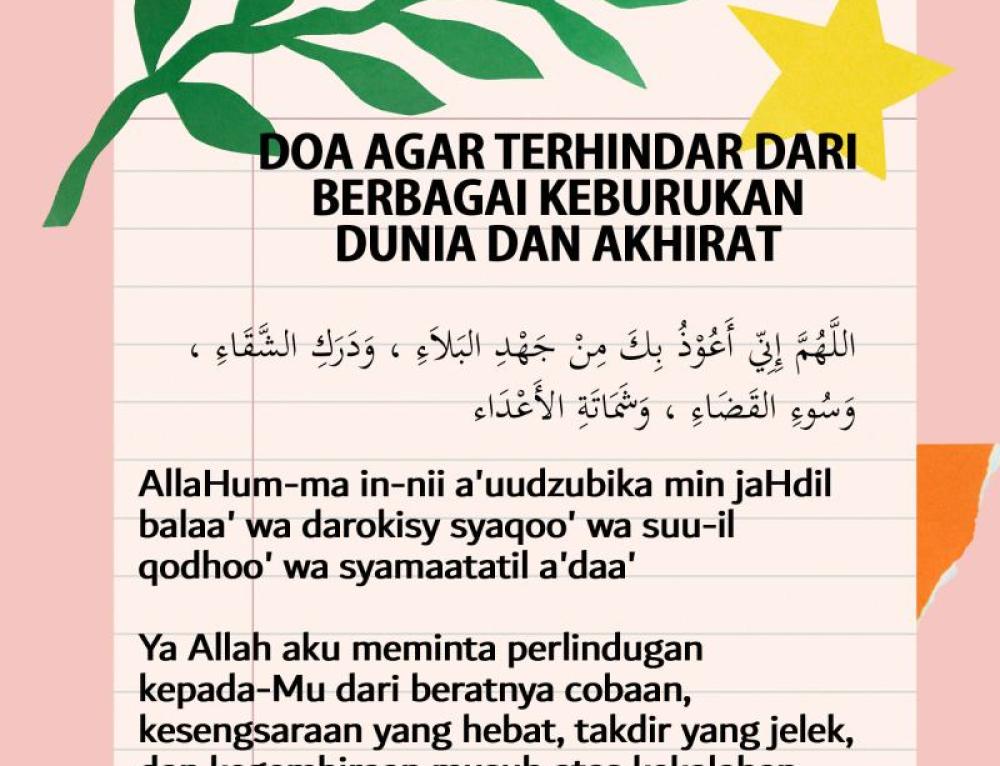 DOA AGAR TERHINDAR DARI
BERBAGAI KEBURUKAN
DUNIA DAN AKHIRAT
اللَّهُمَّ إِنِّي أَعُوْذُ بِكَ مِنْ جَهْدِ البَلاَءِ ، وَدَرَكِ الشَّقَاءِ ،
وَسُوءِ القَضَاءِ ، وَشَمَاتَةِ الأَعْدَاء
AllaHum-ma in-nii a'uudzubika min jaHdil
balaa' wa darokisy syaqoo' wa suu-il
qodhoo' wa syamaatatil a'daa'
Ya Allah aku meminta perlindugan
kepada-Mu dari beratnya cobaan,
kesengsaraan yang hebat, takdir yang jelek,
dan kegembiraan musuh atas kekalahan